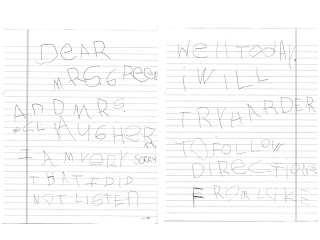 DEAR
MRGGREEN
AND MRS.
AUGHER
I AM VORY SORRY
THAT I DID
NOT LISTEN
WEll TODAY.
i WILL
TRY HARDER
TO FOLLOW
DIRECTIONS
FROM LUKE